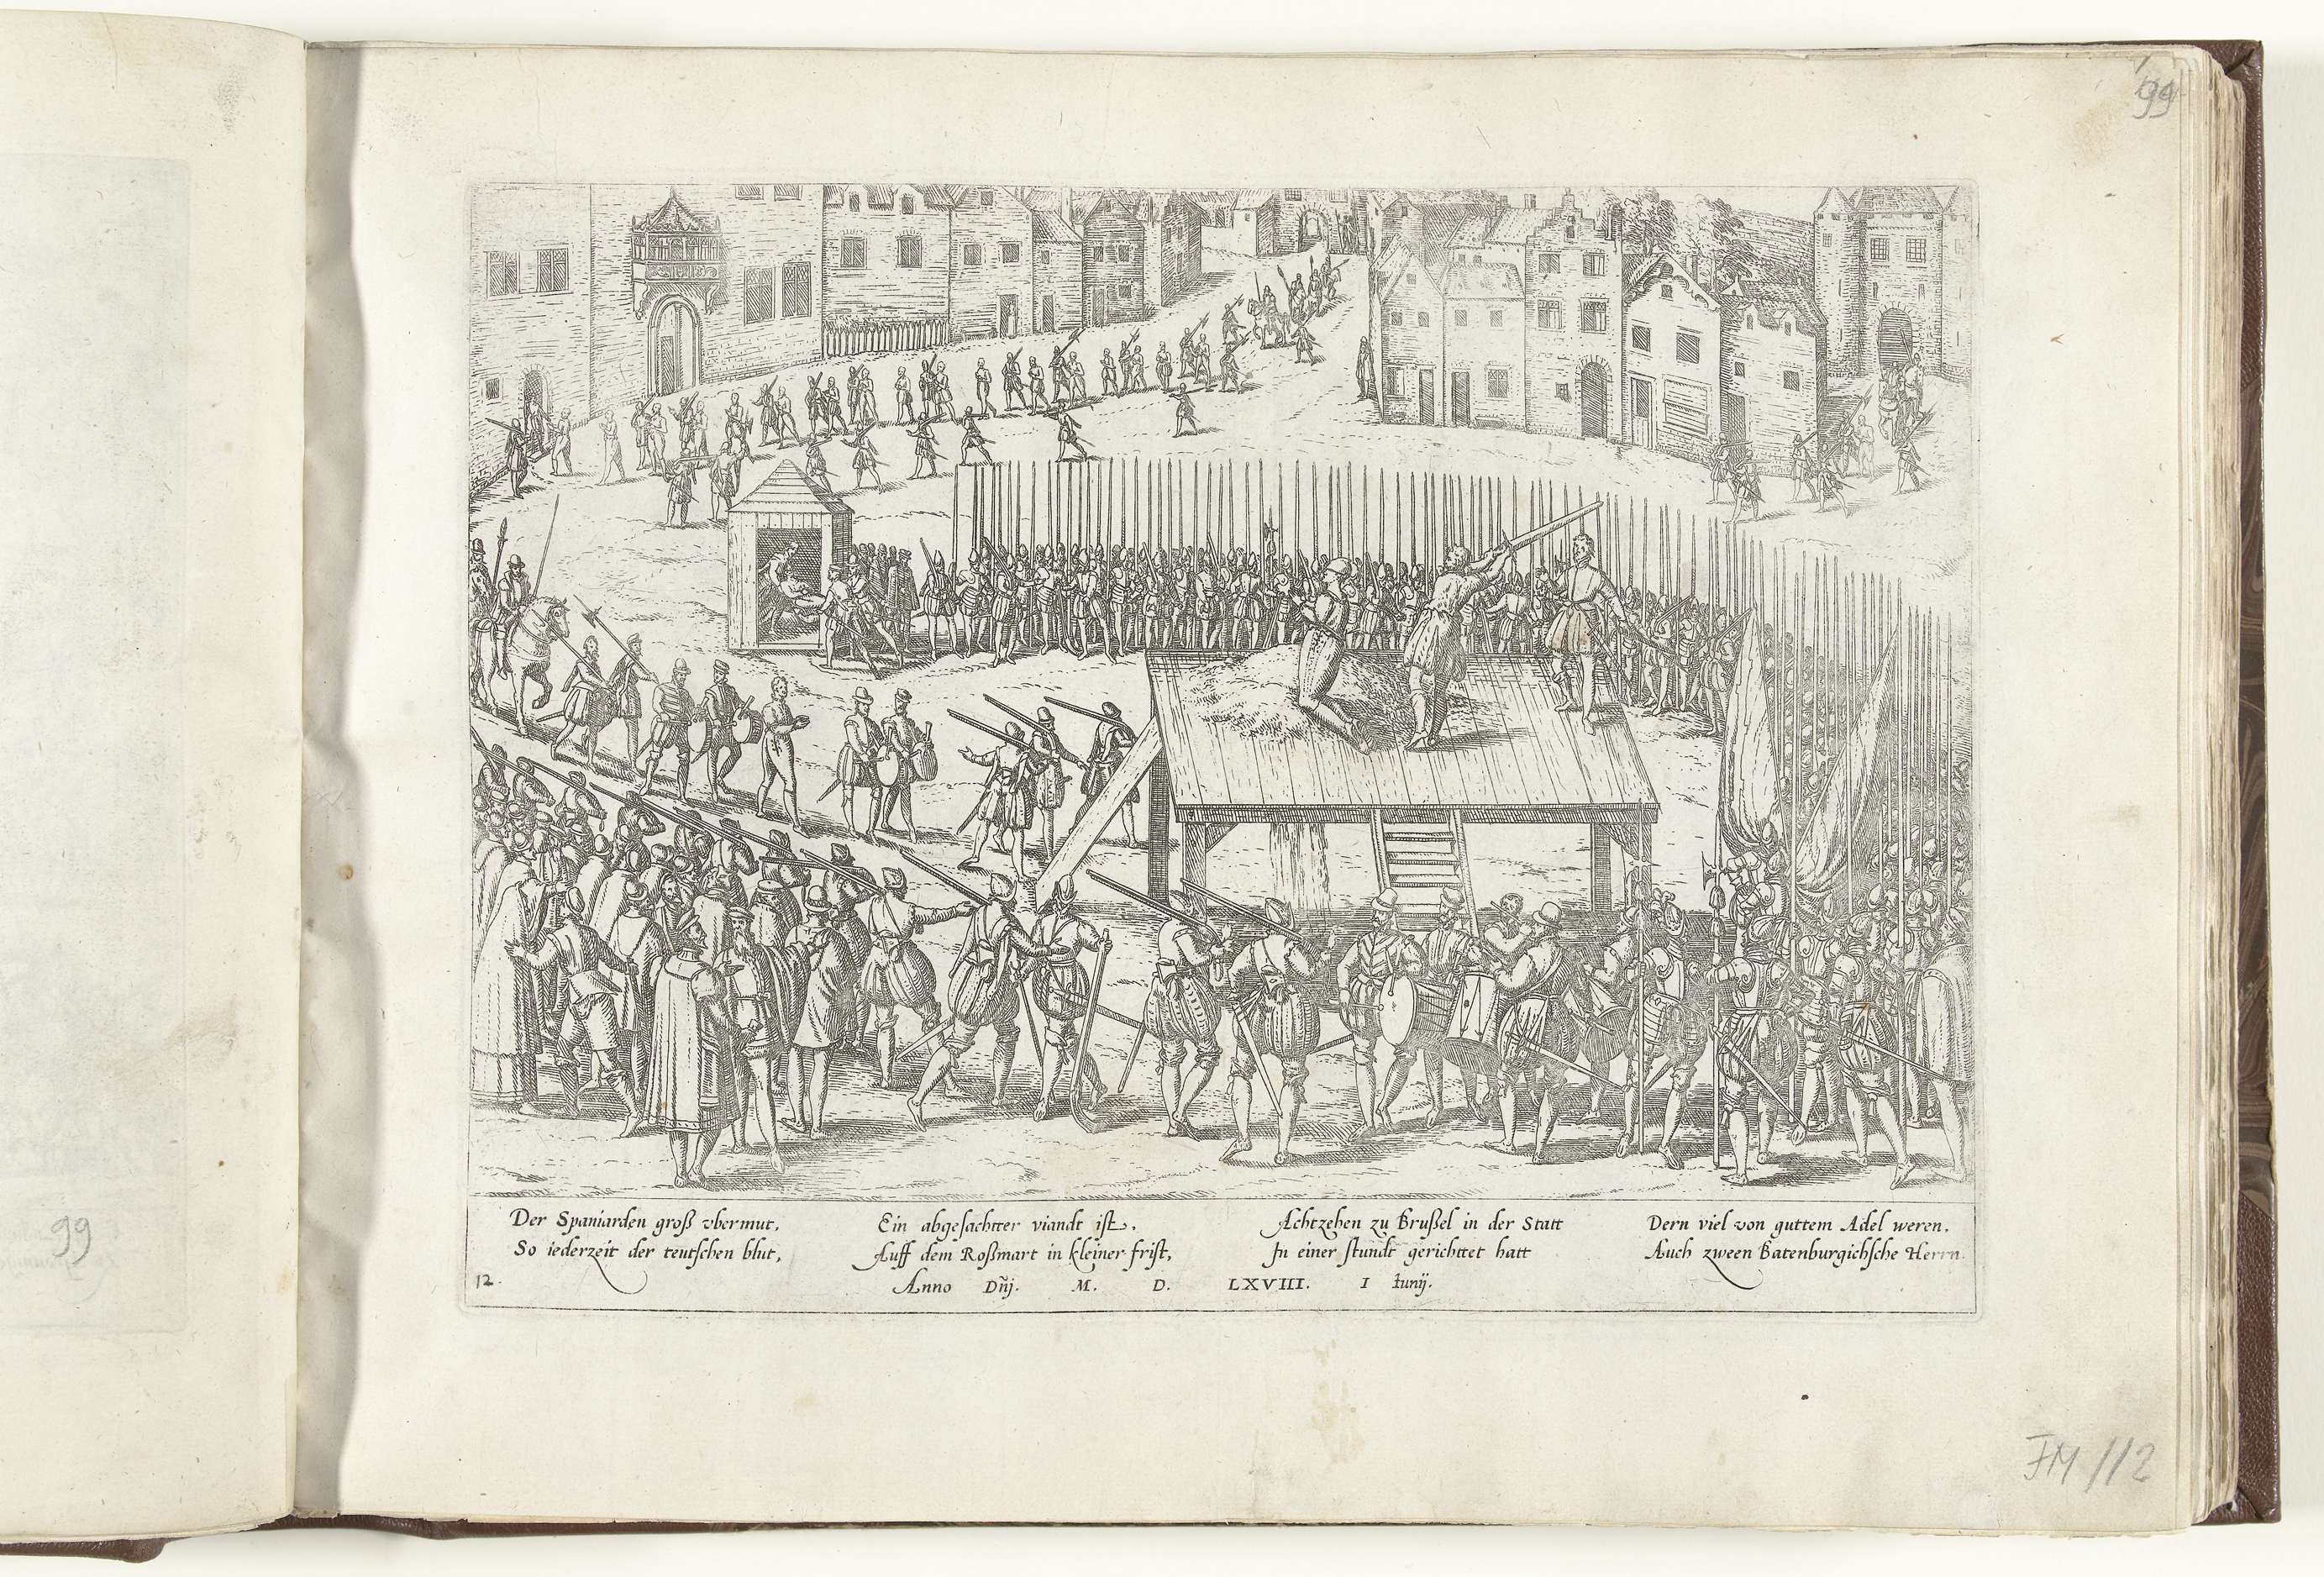 99
99
Der Spaniarden groß vbermut,
So iederzeit der teutschen blut,
Ein abgesachtter viandt ist,
Auff dem Roßmart in kleiner frist,
Achtzehen zu Brußel in der Statt
In einer stundt gerichttet hatt
Dern viel von guttem Adel weren,
Auch zween Batenburgichsche Herrn
12.
Anno Dñj. M. D. LXVIII. I Iunij.
FM 112